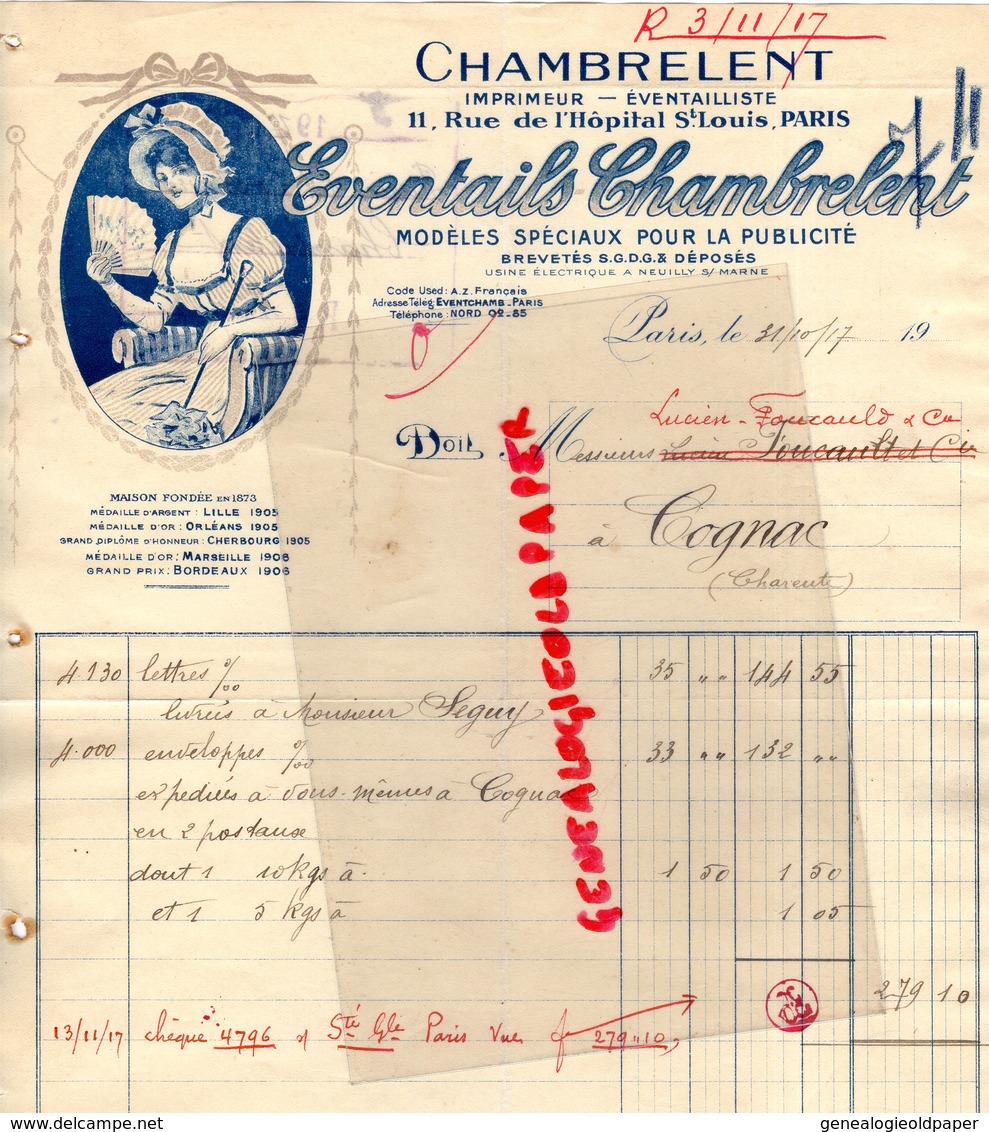 R 3/11/17
CHAMBRELENT
IMPRIMEUR — ÉVENTAILLISTE
11, Rue de l'Hôpital St Louis, PARIS
Eventails Chambrelent
MODÈLES SPÉCIAUX POUR LA PUBLICITÉ
BREVETÉS S.G.D.G. & DÉPOSÉS
USINE ÉLECTRIQUE A NEUILLY S/ MARNE
Code Used: A.Z. Français
Adresse Télég: EVENTCHAMB-PARIS
Téléphone: NORD 02-85
Paris, le 31/10/17 19
Lucien-Foucauld & Cie
Doit Messieurs Lucien Foucault et Cie
à Cognac
(Charente)
MAISON FONDÉE EN 1873
MÉDAILLE D'ARGENT : LILLE 1905
MÉDAILLE D'OR : ORLÉANS 1905
GRAND DIPLÔME D'HONNEUR : CHERBOURG 1905
MÉDAILLE D'OR : MARSEILLE 1906
GRAND PRIX : BORDEAUX 1906
4.130 lettres ‰ 35 " " 144 55
livrées à Monsieur Seguy
4.000 enveloppes ‰ 33 " " 132 " "
expediées à vous-mêmes à Cognac
en 2 postaux
dont 1 10 kgs à 1 50 1 50
et 1 5 kgs à 1 05
279 10
13/11/17 chèque 4796 s/ Sté Gle Paris Vue f 279"10
GENEALOGIEOLDPAPER
delcampe.net
genealogieoldpaper